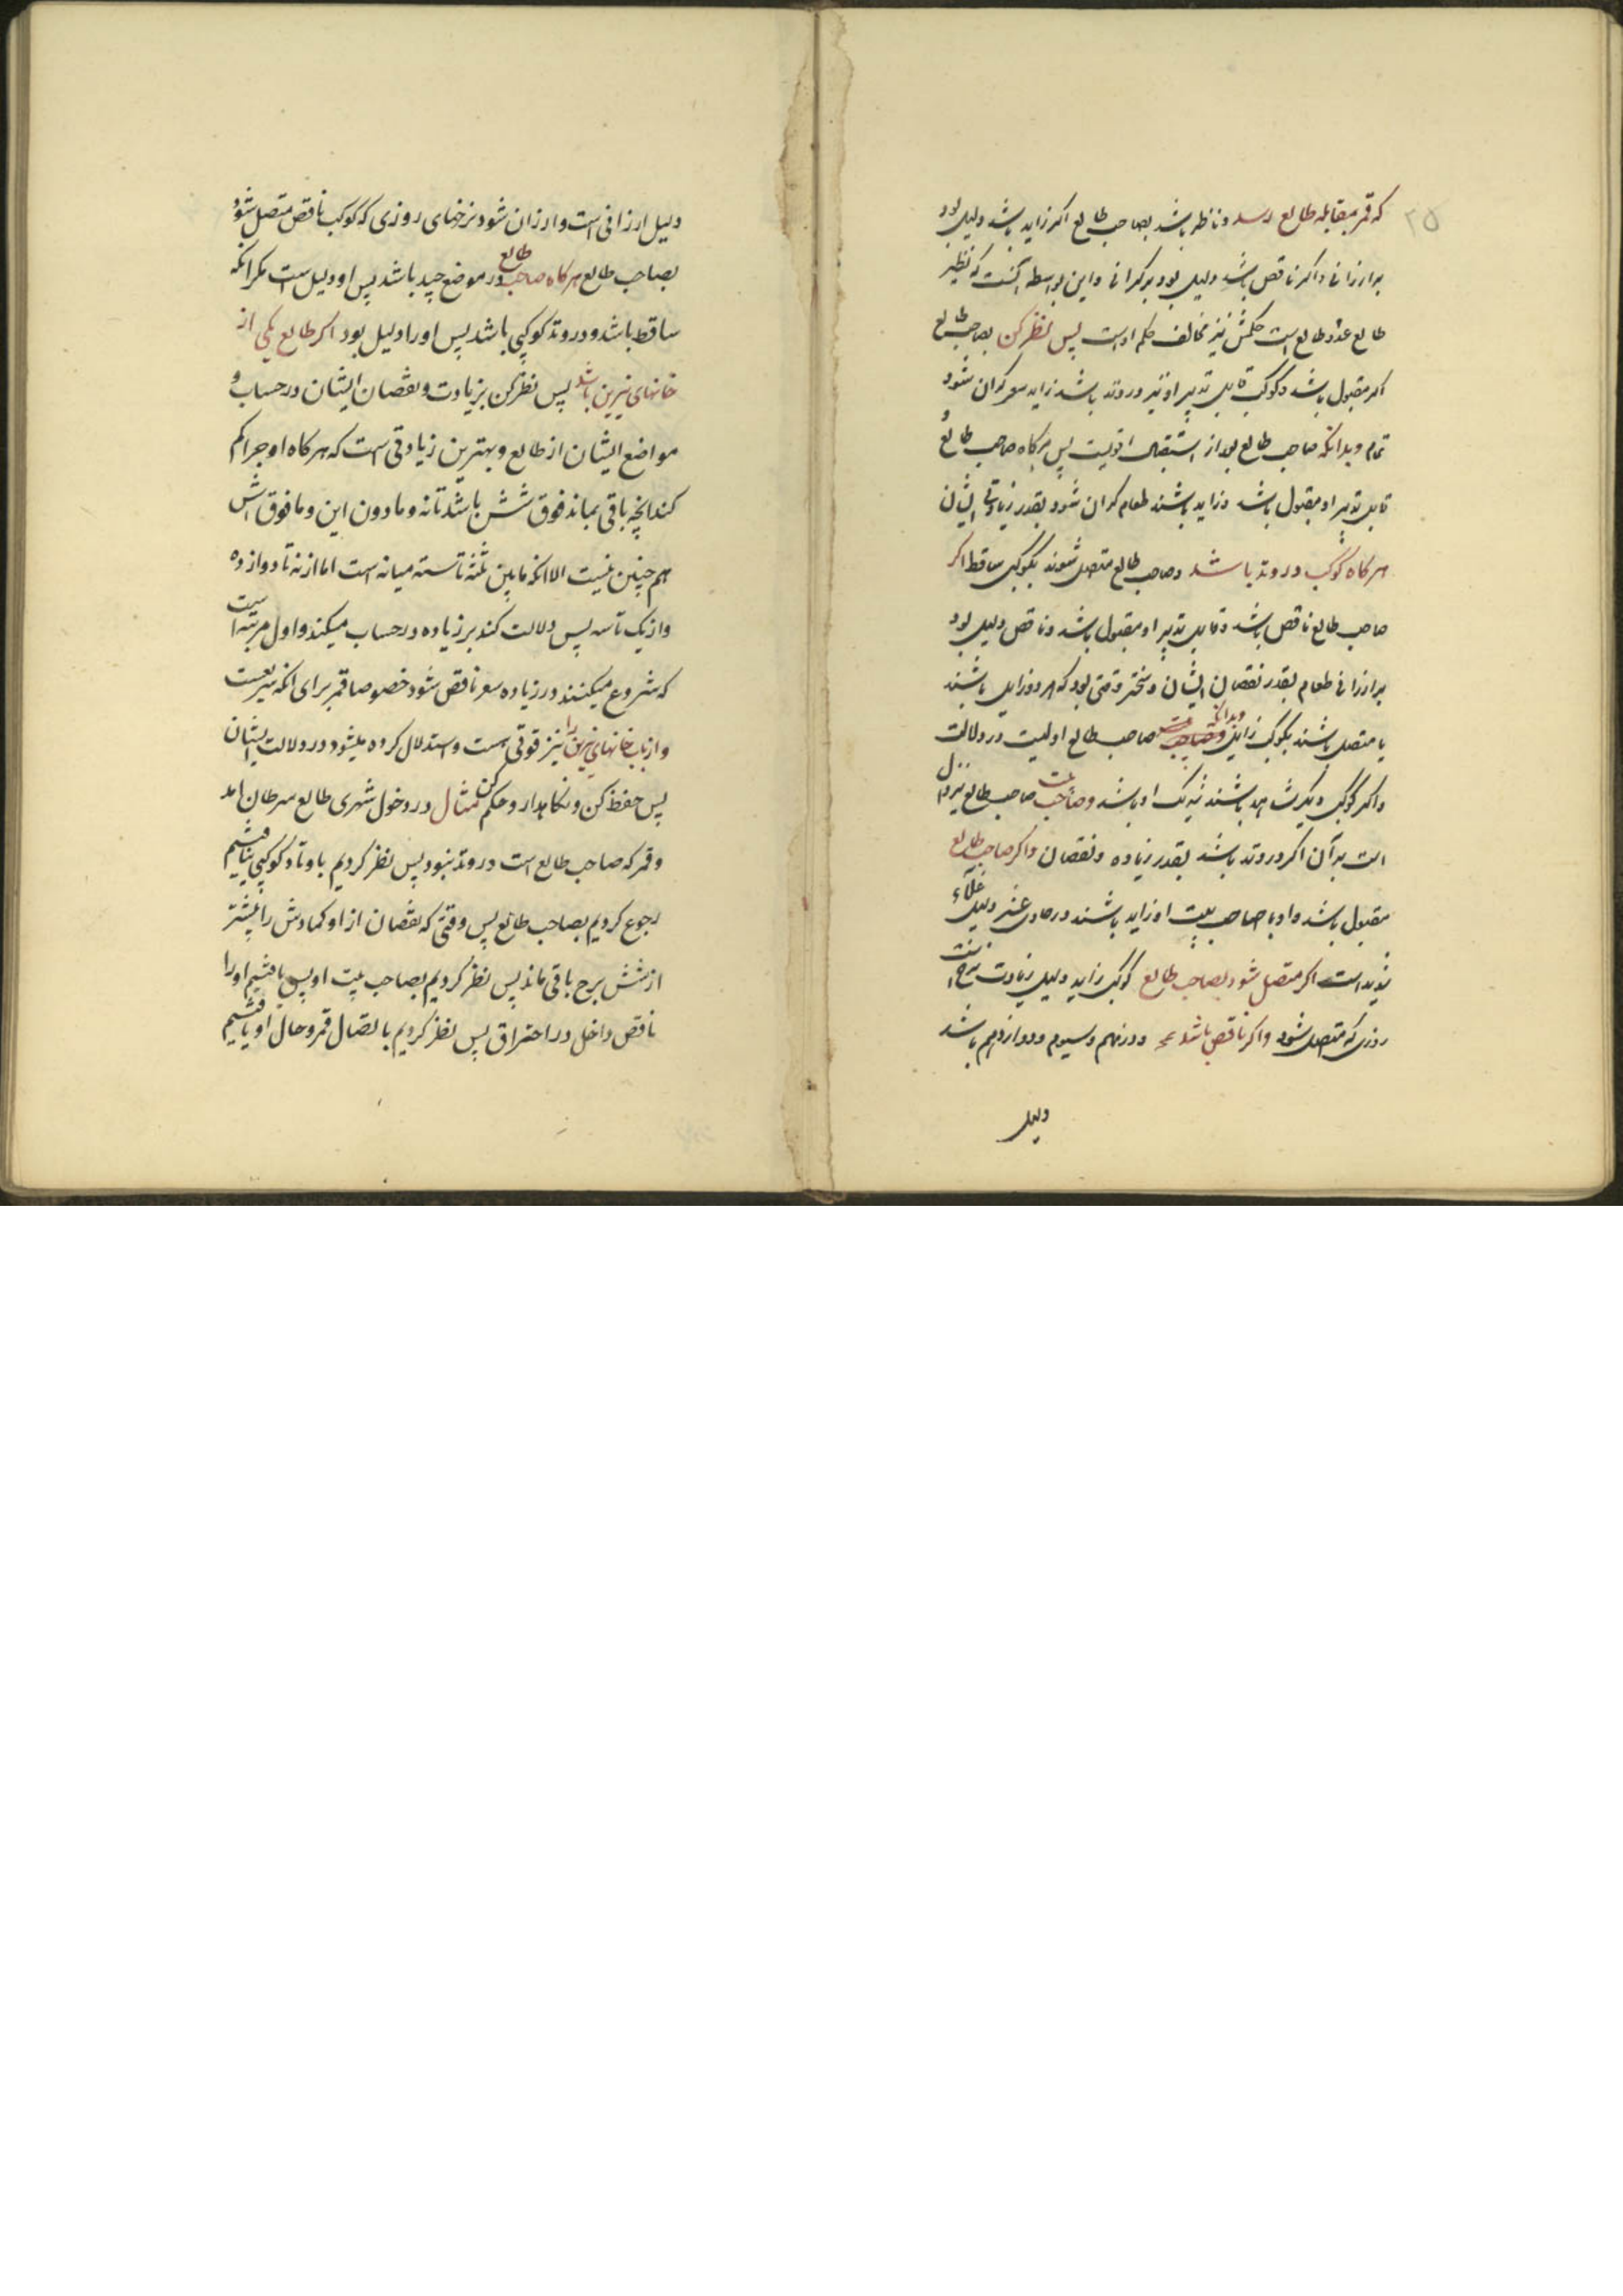 ۲۵
که قمر بمقابله طالع رسد و ناظر باشد بصاحب طالع اکر زاید باشد دلیل بود
بر ارزانی و اکر ناقص باشد دلیل بود بر کرانی و این بواسطه آنست که نظیر
طالع عدو طالع است حکمش نیز مخالف حکم اوست پس نظر کن بصاحب طالع
اکر مقبول باشد و کوکب قابل تدبیر او نیز در وتد باشد زاید سعر کران شود
تمام و بدانکه صاحب طالع بعد از استقبال اقویست پس هرکاه صاحب طالع و
قابل تدبیر او مقبول باشد و زاید باشند طعام کران شود بقدر زیادتی ایشان
هرکاه کوکب در وتد باشد و صاحب طالع متصل شوند بکوکبی ساقط اکر
صاحب طالع ناقص باشد و قابل تدبیر او مقبول باشد و ناقص دلیل بود
بر ارزانی طعام بقدر نقصان ایشان و سختر وقتی بود که هر دو زایل باشند
یا متصل باشند بکوکب زایل و بدانکه صاحب طالع اولیست در دلالت
و اکر کوکبی دیکر شاهد باشند شریک او باشد و صاحب بیت صاحب طالع نیز دال
است بر آن اکر در وتد باشد بقدر زیاده و نقصان و اکر صاحب طالع
مقبول باشد و او با صاحب بیت او زاید باشند در حادی عشر دلیل غلاء
شدید است اکر متصل شود بصاحب طالع کوکب زاید دلیل زیادت نرخ است
روزی که متصل شود و اکر ناقص باشد و در نهم و سیوم و دوازدهم باشد
دلیل
دلیل ارزانی است و ارزان شود نرخهای روزی که کوکب ناقص متصل شود
بصاحب طالع هرکاه صاحب طالع در موضع جید باشد پس او دلیل است مکر انکه
ساقط باشد و در وتد کوکبی باشد پس او را دلیل بود اکر طالع یکی از
خانهای نیرین باشد پس نظر کن بزیادت و نقصان ایشان در حساب و
مواضع ایشان از طالع و بهترین زیادتی است که هرکاه اوج را کم
کند انچه باقی بماند فوق شش باشد تا نه و مادون این و مافوق اش
هم چنین نیست الا انکه مابین ثلثه تا سته میانه است اما از نه تا دوازده
و از یک تا سه پس دلالت کند بر زیاده در حساب میکند و اول مرتبه است
که شروع میکنند در زیاده سعر ناقص شود خصوصا قمر برای انکه سریعست
و ارباب خانهای نیرین را نیز قوتی است و استدلال کرده میشود در دلالت ایشان
پس حفظ کن و نکاهدار و حکم کن مثال در دخول شهری طالع سرطان امد
و قمر که صاحب طالع است در وتد نبود پس نظر کردیم باوتاد کوکبی نیافتیم
رجوع کردیم بصاحب طالع پس وقتی که نقصان از او کمادش را بیشتر
از شش برج باقی ماند پس نظر کردیم بصاحب بیت او پس یافتیم او را
ناقص داخل در احتراق پس نظر کردیم باتصال قمر و حال او یافتیم